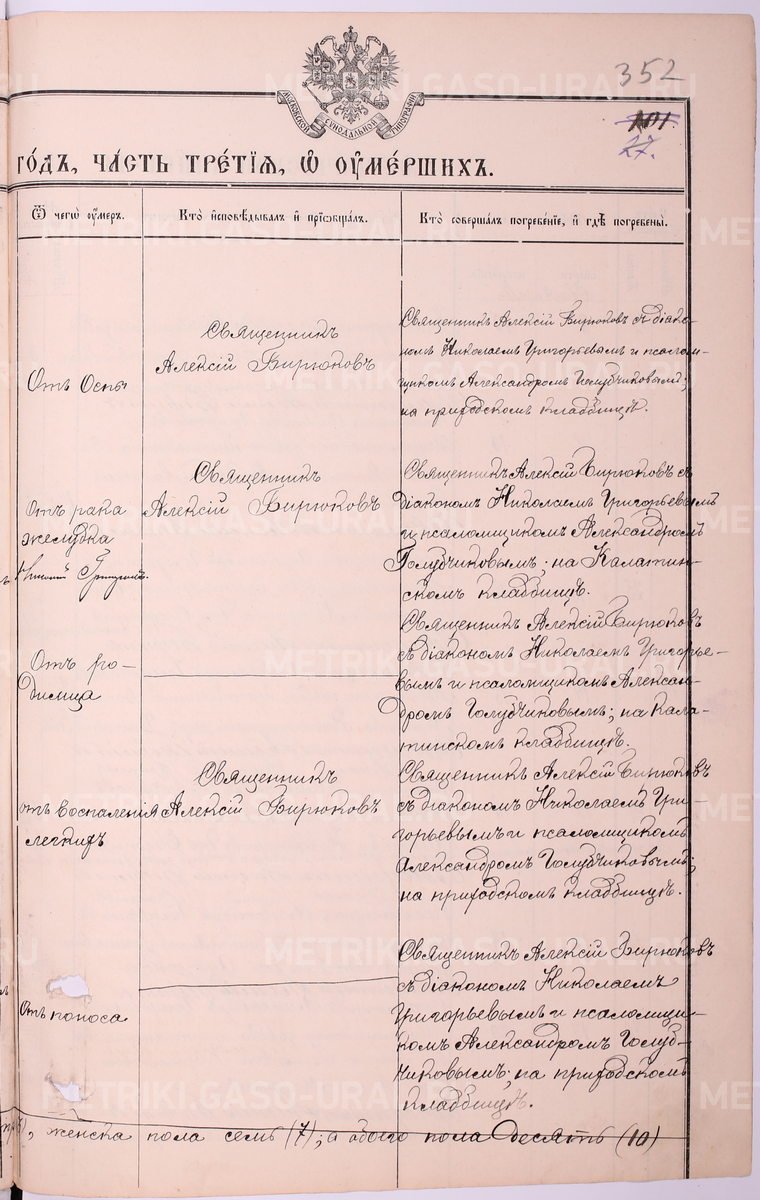 352
101.
27.
МОСКОВСКОЙ СѴНОДАЛЬНОЙ ТИПОГРАФІИ
го́дъ, ча́сть тре́тїѧ, ѡ оу҆ме́ршихъ.
Ѿ чегѡ̀ оу҆́меръ.
Кто̀ и҆сповѣ́дывалъ и҆ прїѡбща́лъ.
Кто̀ соверша́лъ погребе́нїе, и҆ гдѣ̀ погребены̀.
Отъ Оспы
Священникъ
Алексій Бирюковъ
Священникъ Алексій Бирюковъ съ діако-
номъ Николаемъ Григорьевымъ и псалом-
щикомъ Александромъ Голубчиковымъ;
на приходскомъ кладбищѣ.
Отъ рака
желудка
Священникъ
Алексій Бирюковъ
Священникъ Алексій Бирюковъ съ
діакономъ Николаемъ Григорьевымъ
и псаломщикомъ Александромъ
Голубчиковымъ; на Калатин-
скомъ кладбищѣ.
Отъ ро-
димца
Священникъ Алексій Бирюковъ
съ діакономъ Николаемъ Григорье-
вымъ и псаломщикомъ Алексан-
дромъ Голубчиковымъ; на Кала-
тинскомъ кладбищѣ.
отъ воспаленія
легкихъ
Священникъ
Алексій Бирюковъ
Священникъ Алексій Бирюковъ
съ діакономъ Николаемъ Гри-
горьевымъ и псаломщикомъ
Александромъ Голубчиковымъ;
на приходскомъ кладбищѣ.
Отъ поноса
Священникъ Алексій Бирюковъ
съ діакономъ Николаемъ
Григорьевымъ и псаломщи-
комъ Александромъ Голуб-
чиковымъ; на приходскомъ
кладбищѣ.
женска пола семь (7); а обоего пола десять (10)
METRIKI.GASO-URAL.RU